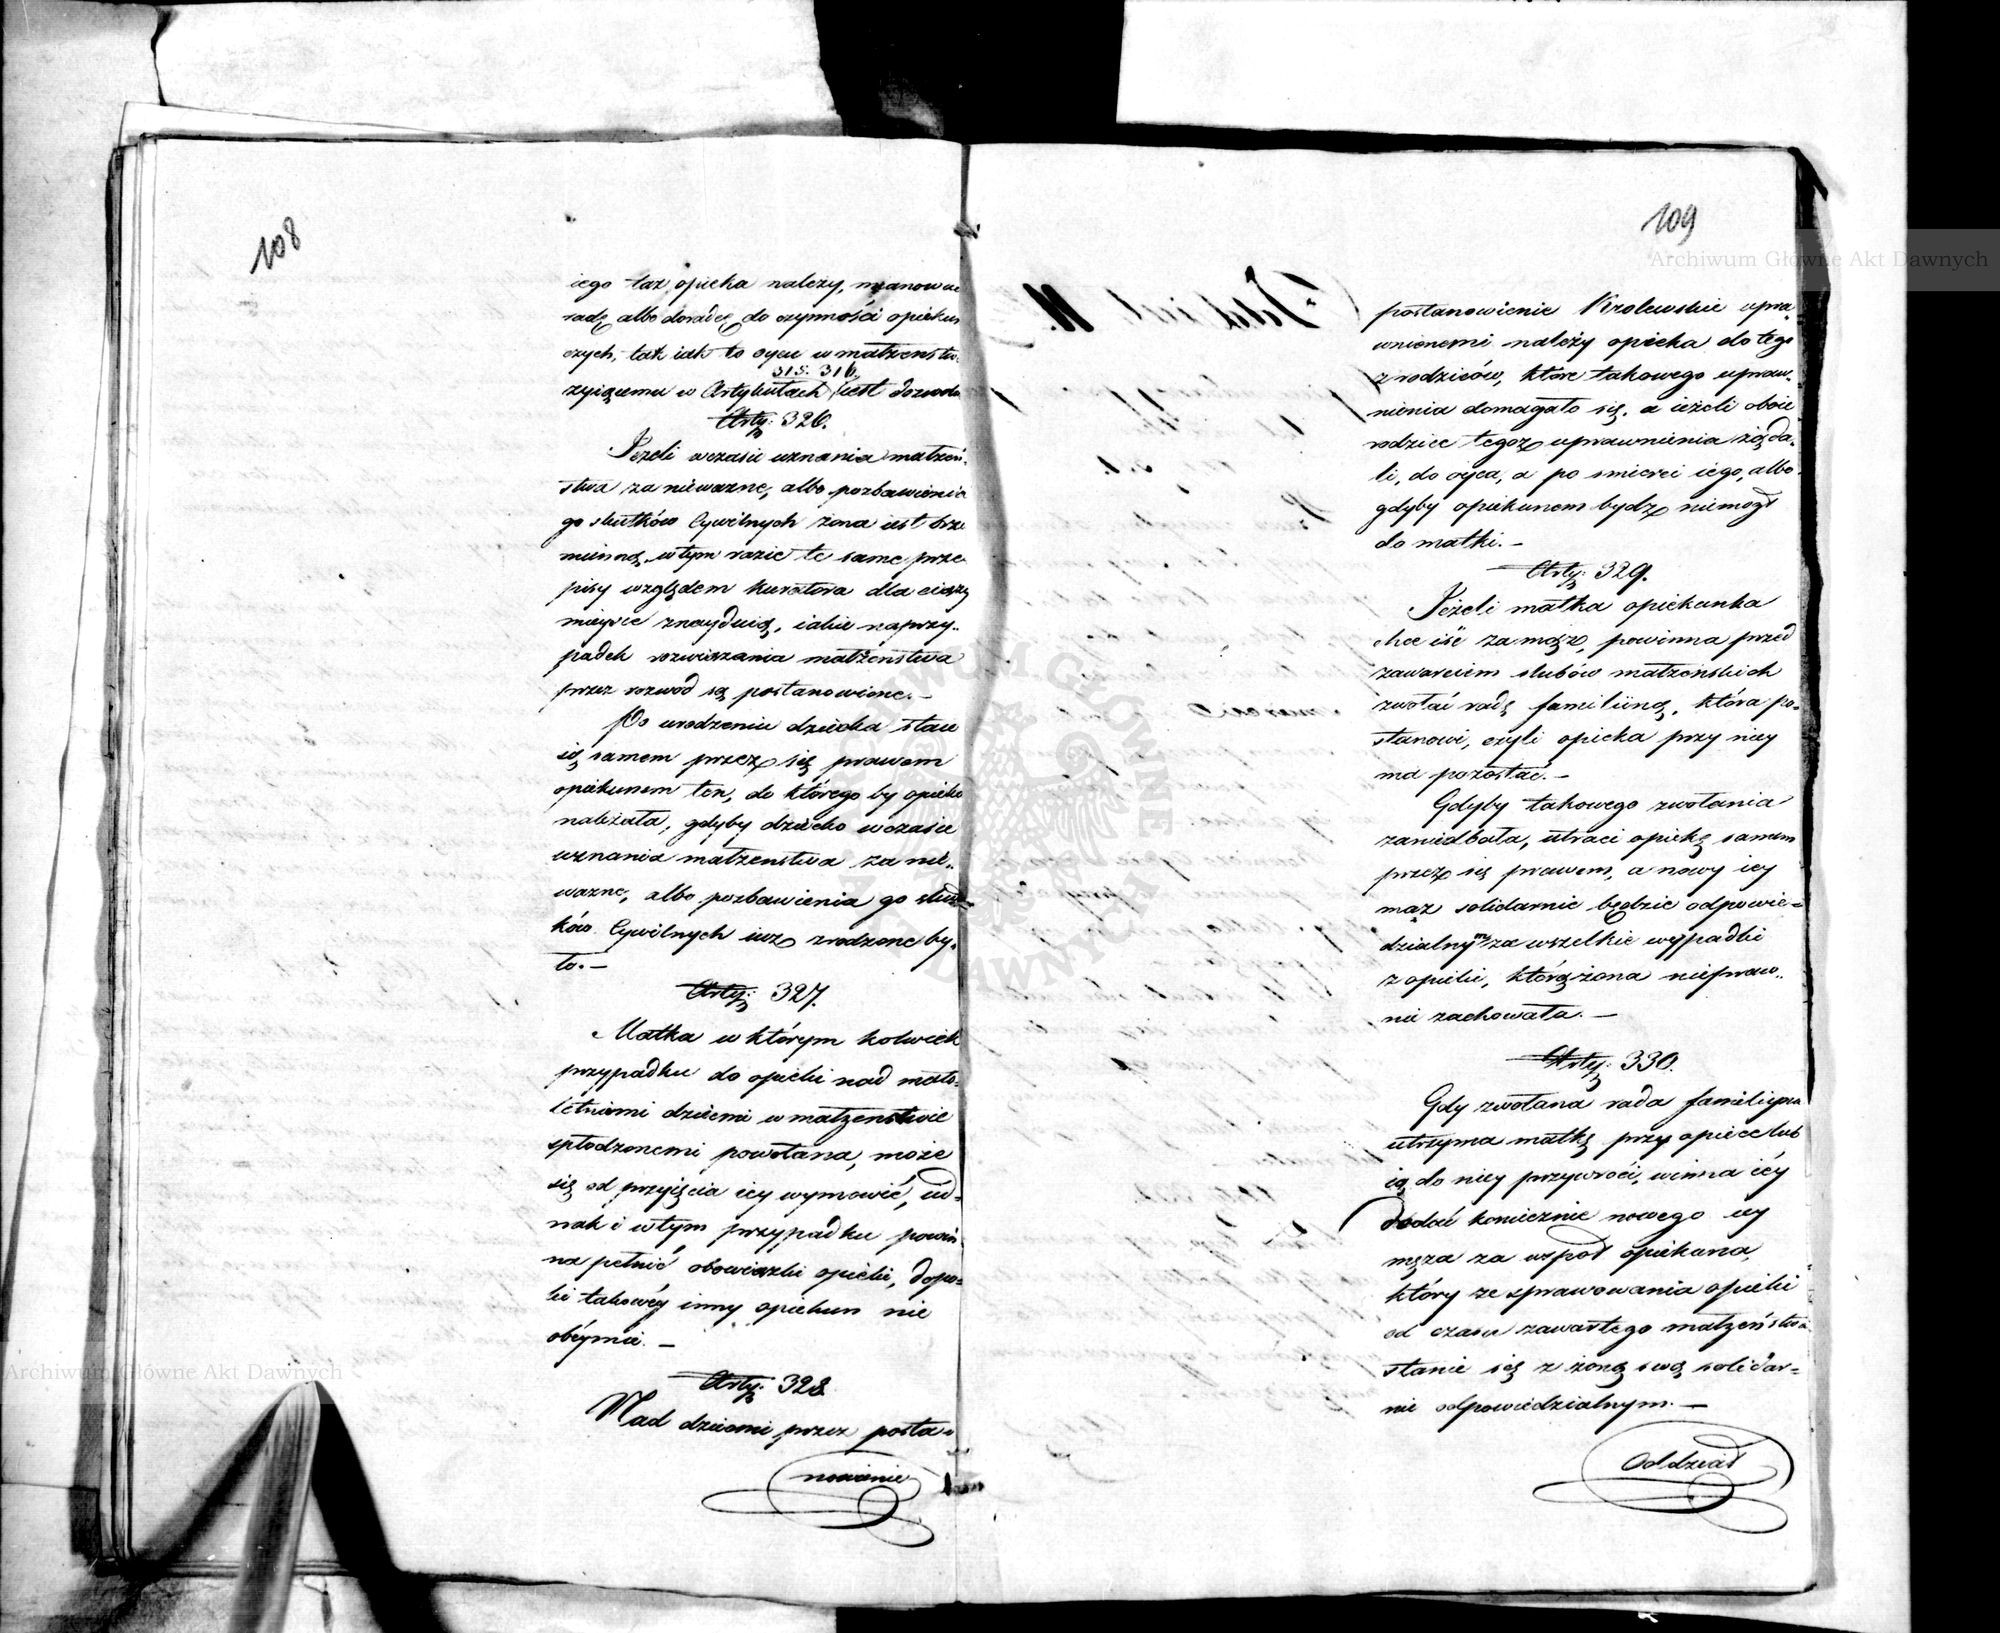 108
iego taż opieka należy, mianować
radę albo doradcę do czynności opiekun
czych, tak iak to oycu w małżeństw.
315. 316.
żyiącemu w Artykułach iest dozwolo
Arty: 326.
Jeżeli wczasie uznania małżeń-
stwa za nieważne, albo pozbawienia
go skutków Cywilnych żona iest brze
mienną, w tym razie te same prze
pisy względem kuratora dla ciąży
mieysce znayduią, iakie na przy-
padek rozwiązania małżeństwa
przez rozwod są postanowione. –
Po urodzeniu dziecka staie
się samem przez się prawem
opiekunem ten, do którego by opieka
należała, gdyby dziecko wczasie
uznania małżenstwa za nie-
ważne, albo pozbawienia go skut-
ków Cywilnych iuż zrodzone by-
ło. –
Arty: 327.
Matka w którym kolwiek
przypadku do opieki nad mało-
letniemi dziećmi w małżenstwie
spłodzonemi powołana, może
się od przyięcia iey wymowić, ied-
nak i w tym przypadku powin-
na pełnić obowiązki opieki, dopo-
ki takowéy inny opiekun nie
obéymie. –
Arty: 328.
Nad dziećmi przez posta-
nowienie
109
postanowienie Krolewskie upra
wnionemi należy opieka do tego
z rodziców, które takowego upraw-
nienia domagało się, a ieżeli oboie
rodzice tegoż uprawnienia żąda-
li, do oyca, a po smierci iego, albo
gdyby opiekunem bydź niemogł
do matki. –
Arty: 329.
Jeżeli matka opiekunka
chce iść za mąż, powinna przed
zawarciem slubów małżeńskich
zwołać radę familiiną, która po-
stanowi, czyli opieka przy niey
ma pozostać. –
Gdyby takowego zwołania
zaniedbała, utraci opiekę samem
przez się prawem, a nowy iey
mąż solidarnie będzie odpowie-
dzialnym za wszelkie wypadki
z opieki, którą żona niepraw-
nie zachowała. –
Arty: 330.
Gdy zwołana rada familiyna
utrzyma matkę przy opiece lub
ią do niey przywroci, winna iéy
dodać koniecznie nowego iey
męża za wspoł opiekuna,
który ze sprawowania opieki
od czasu zawartego małżeństwa
stanie się z żoną swą solidar-
nie odpowiedzialnym. –
Oddział
Archiwum Główne Akt Dawnych
Archiwum Główne Akt Dawnych